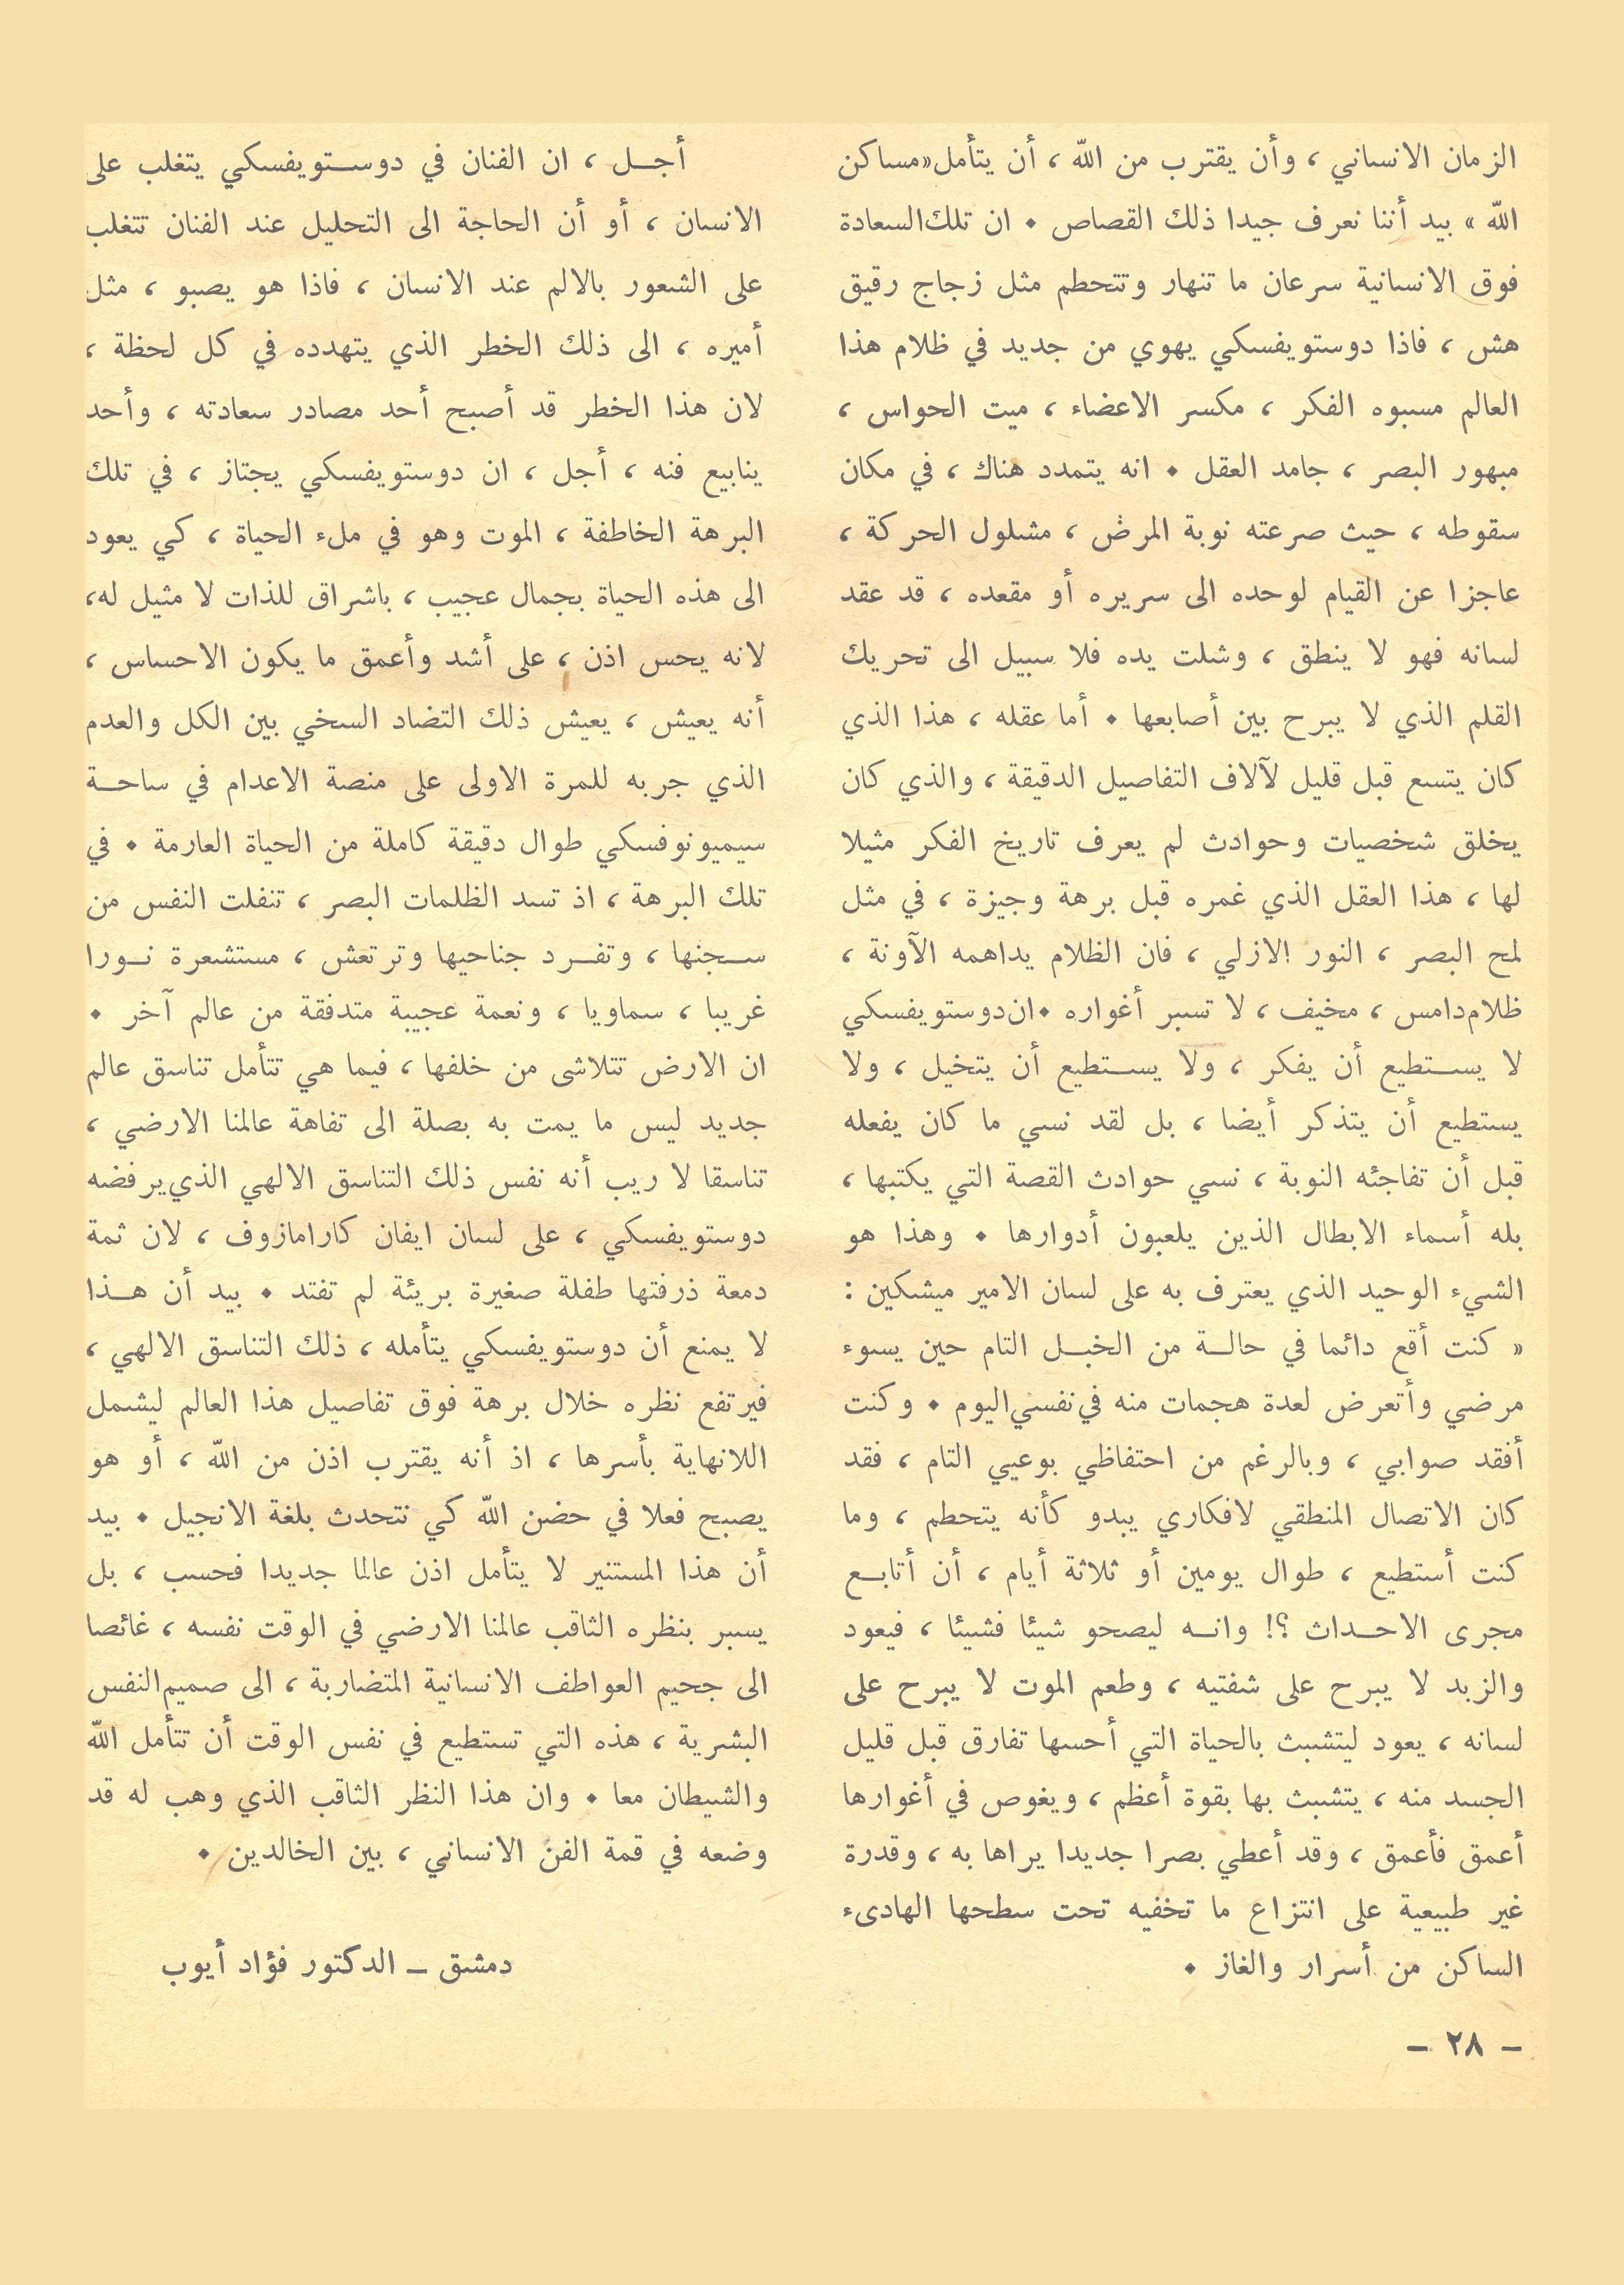 الزمان الانساني ، وأن يقترب من الله ، أن يتأمل «مساكن
الله » بيد أننا نعرف جيدا ذلك القصاص . ان تلك السعادة
فوق الانسانية سرعان ما تنهار وتتحطم مثل زجاج رقيق
هش ، فاذا دوستويفسكي يهوي من جديد في ظلام هذا
العالم مسبوه الفكر ، مكسر الاعضاء ، ميت الحواس ،
مبهور البصر ، جامد العقل . انه يتمدد هناك ، في مكان
سقوطه ، حيث صرعته نوبة المرض ، مشلول الحركة ،
عاجزا عن القيام لوحده الى سريره أو مقعده ، قد عقد
لسانه فهو لا ينطق ، وشلت يده فلا سبيل الى تحريك
القلم الذي لا يبرح بين أصابعها . أما عقله ، هذا الذي
كان يتسع قبل قليل لآلاف التفاصيل الدقيقة ، والذي كان
يخلق شخصيات وحوادث لم يعرف تاريخ الفكر مثيلا
لها ، هذا العقل الذي غمره قبل برهة وجيزة ، في مثل
لمح البصر ، النور الازلي ، فان الظلام يداهمه الآونة ،
ظلام دامس ، مخيف ، لا تسبر أغواره . ان دوستويفسكي
لا يستطيع أن يفكر ، ولا يستطيع أن يتخيل ، ولا
يستطيع أن يتذكر أيضا ، بل لقد نسي ما كان يفعله
قبل أن تفاجئه النوبة ، نسي حوادث القصة التي يكتبها ،
بله أسماء الابطال الذين يلعبون أدوارها . وهذا هو
الشيء الوحيد الذي يعترف به على لسان الامير ميشكين :
« كنت أقع دائما في حالة من الخبل التام حين يسوء
مرضي وأتعرض لعدة هجمات منه في نفسي اليوم . وكنت
أفقد صوابي ، وبالرغم من احتفاظي بوعيي التام ، فقد
كان الاتصال المنطقي لافكاري يبدو كأنه يتحطم ، وما
كنت أستطيع ، طوال يومين أو ثلاثة أيام ، أن أتابع
مجرى الاحداث ؟! وانه ليصحو شيئا فشيئا ، فيعود
والزبد لا يبرح على شفتيه ، وطعم الموت لا يبرح على
لسانه ، يعود ليتشبث بالحياة التي أحسها تفارق قبل قليل
الجسد منه ، يتشبث بها بقوة أعظم ، ويغوص في أغوارها
أعمق فأعمق ، وقد أعطي بصرا جديدا يراها به ، وقدرة
غير طبيعية على انتزاع ما تخفيه تحت سطحها الهادىء
الساكن من أسرار والغاز .
أجل ، ان الفنان في دوستويفسكي يتغلب على
الانسان ، أو أن الحاجة الى التحليل عند الفنان تتغلب
على الشعور بالالم عند الانسان ، فاذا هو يصبو ، مثل
أميره ، الى ذلك الخطر الذي يتهدده في كل لحظة ،
لان هذا الخطر قد أصبح أحد مصادر سعادته ، وأحد
ينابيع فنه ، أجل ، ان دوستويفسكي يجتاز ، في تلك
البرهة الخاطفة ، الموت وهو في ملء الحياة ، كي يعود
الى هذه الحياة بجمال عجيب ، باشراق للذات لا مثيل له،
لانه يحس اذن ، على أشد وأعمق ما يكون الاحساس ،
أنه يعيش ، يعيش ذلك التضاد السخي بين الكل والعدم
الذي جربه للمرة الاولى على منصة الاعدام في ساحة
سيميونوفسكي طوال دقيقة كاملة من الحياة العارمة . في
تلك البرهة ، اذ تسد الظلمات البصر ، تنفلت النفس من
سجنها ، وتفرد جناحيها وترتعش ، مستشعرة نورا
غريبا ، سماويا ، ونعمة عجيبة متدفقة من عالم آخر .
ان الارض تتلاشى من خلفها ، فيما هي تتأمل تناسق عالم
جديد ليس ما يمت به بصلة الى تفاهة عالمنا الارضي ،
تناسقا لا ريب أنه نفس ذلك التناسق الالهي الذي يرفضه
دوستويفسكي ، على لسان ايفان كارامازوف ، لان ثمة
دمعة ذرفتها طفلة صغيرة بريئة لم تفتد . بيد أن هذا
لا يمنع أن دوستويفسكي يتأمله ، ذلك التناسق الالهي ،
فيرتفع نظره خلال برهة فوق تفاصيل هذا العالم ليشمل
اللانهاية بأسرها ، اذ أنه يقترب اذن من الله ، أو هو
يصبح فعلا في حضن الله كي نتحدث بلغة الانجيل . بيد
أن هذا المستنير لا يتأمل اذن عالما جديدا فحسب ، بل
يسبر بنظره الثاقب عالمنا الارضي في الوقت نفسه ، غائصا
الى جحيم العواطف الانسانية المتضاربة ، الى صميم النفس
البشرية ، هذه التي تستطيع في نفس الوقت أن تتأمل الله
والشيطان معا . وان هذا النظر الثاقب الذي وهب له قد
وضعه في قمة الفن الانساني ، بين الخالدين .
دمشق ــ الدكتور فؤاد أيوب
– ٢٨ –